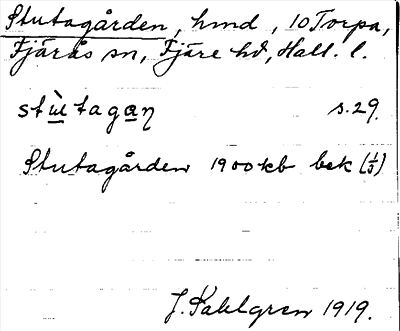 Stutagården, hmd, 10 Torpa,
Fjärås sn, Fjäre hd, Hall. l.
stùtagaη s. 29.
Stutagården 1900 kb bek (1/3)
J. Kahlgren 1919.